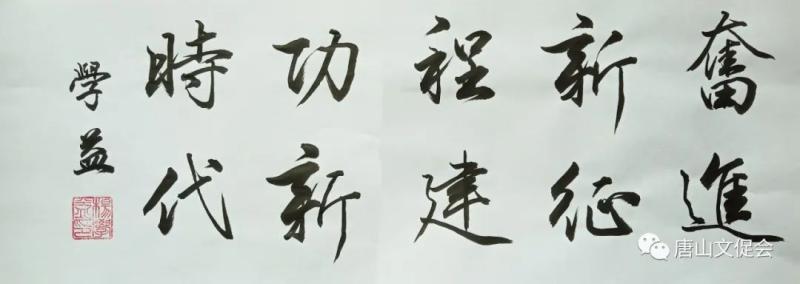 奮進
新征
程建
功新
時代
學益
唐山文促会